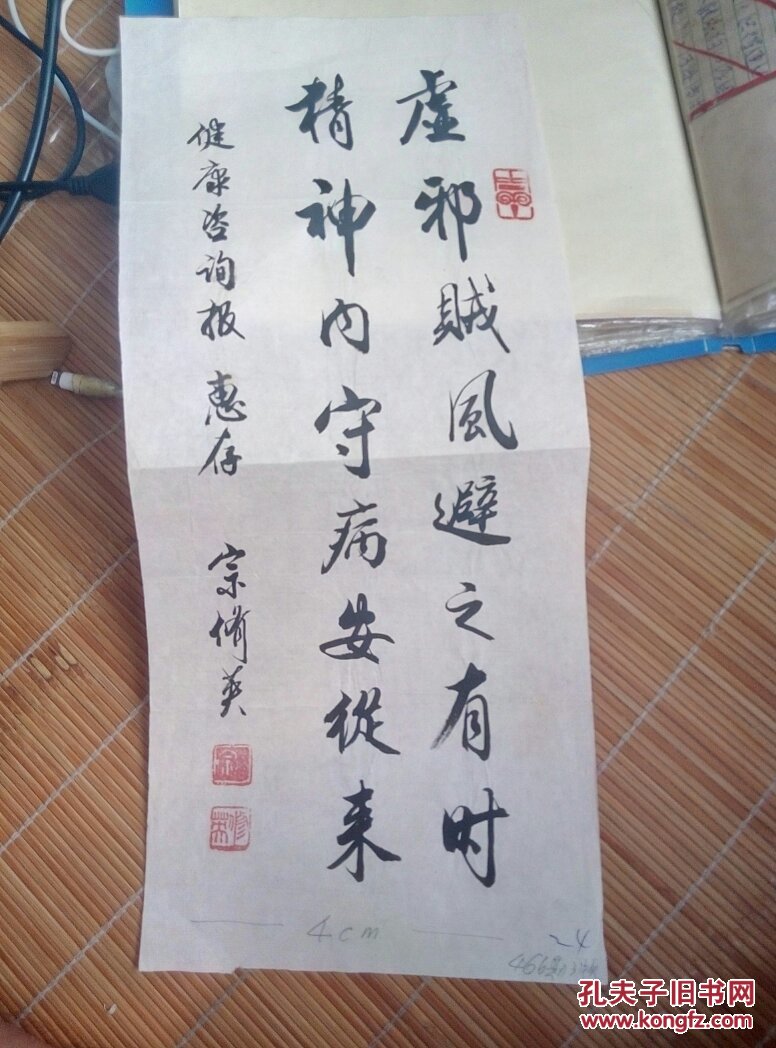 虚邪贼風避之有时
精神内守病安從来
健康咨询报 惠存
宗脩英
4cm
24
孔夫子旧书网
www.kongfz.com